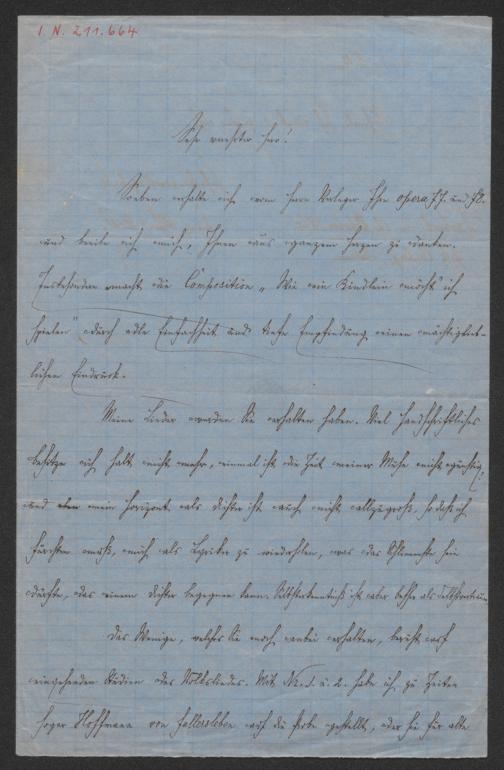 I. N. 211.664
Sehr werther Herr!
Soeben erhalte ich vom Herrn Verleger Ihre opera 77. und 78.
und beeile ich mich, Ihnen aus ganzem Herzen zu danken.
Insbesondere macht die Composition „Wie ein Kindlein möcht' ich
spielen" durch edle Einfachheit und tiefe Empfindung einen mächtigen
lichen Eindruck.
Meine Lieder werden Sie erhalten haben. Viel Handschriftliches
besitze ich halt nicht mehr, einmal ist die Zeit meiner Muse nicht günstig,
und mein Horizont als Dichter ist auch nicht allzugroß, so daß ich
fürchten muß, mich als Lyriker zu wiederholen, was das Schlimmste sein
dürfte, das einem Dichter begegnen kann. Selbsterkenntniß ist aber besser als
Das Wenige, welches Sie noch anbei erhalten, beruht auf
eingehenden Studien des Volksliedes. Mit No. 1. u. 2. habe ich zu Zeiten
sogar Hoffmann von Fallersleben auf die Probe gestellt, der sie für alte